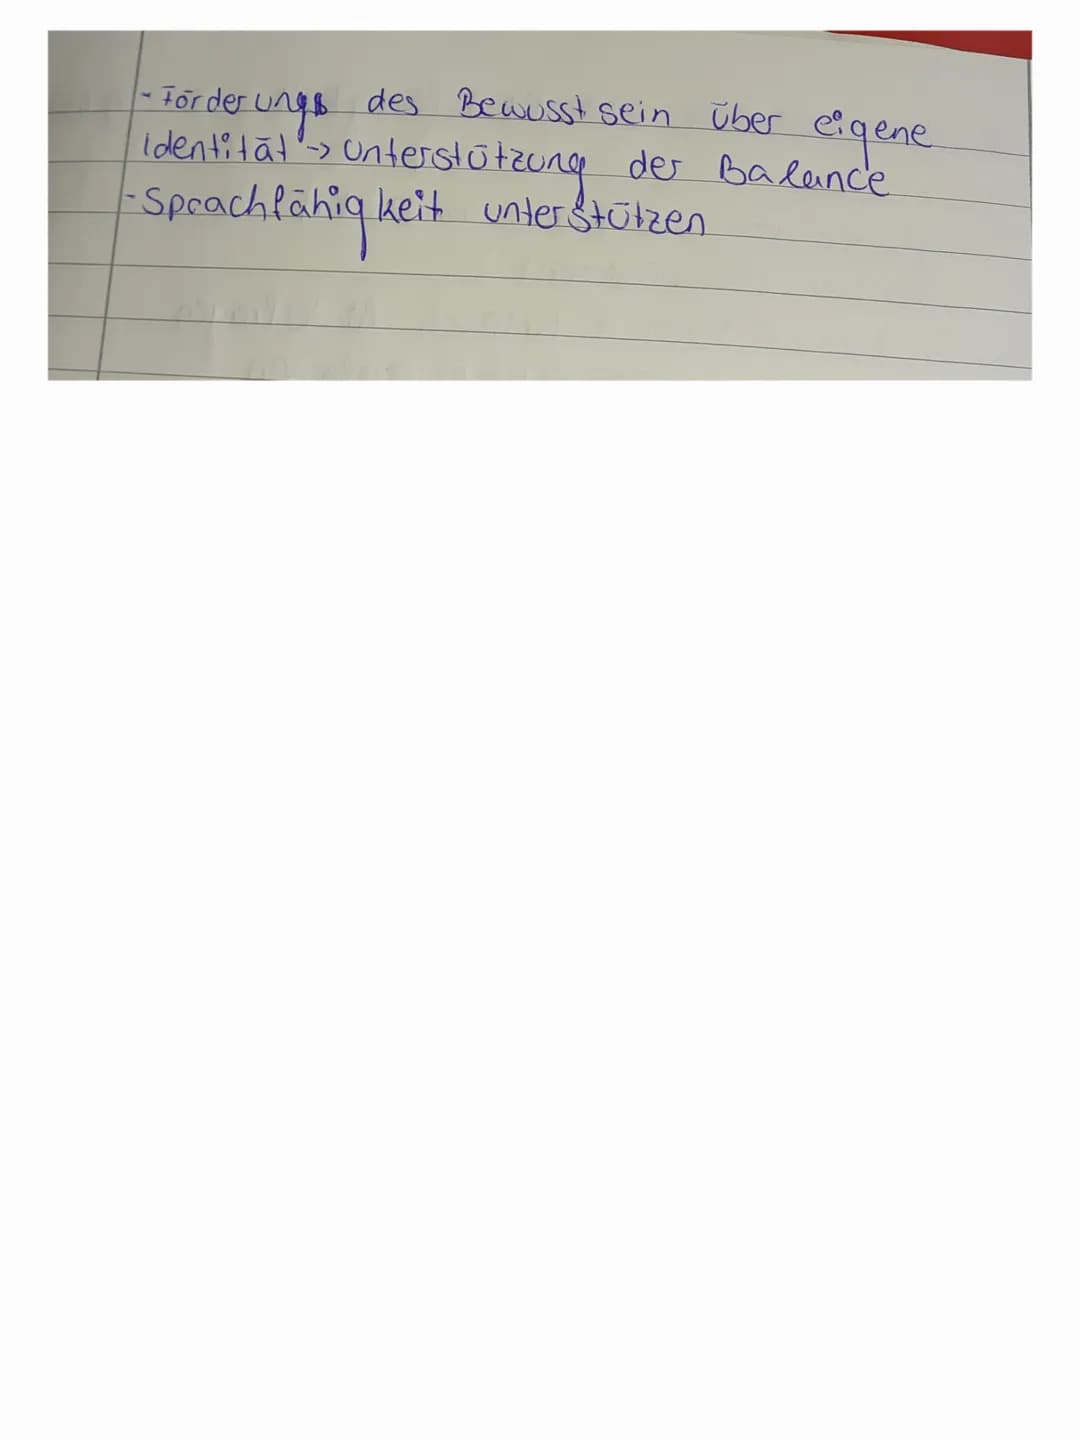 - Förderung des Bewusstsein über eigene
Identität -> Unterstützung der Balance
- Sprachfähigkeit unterstützen